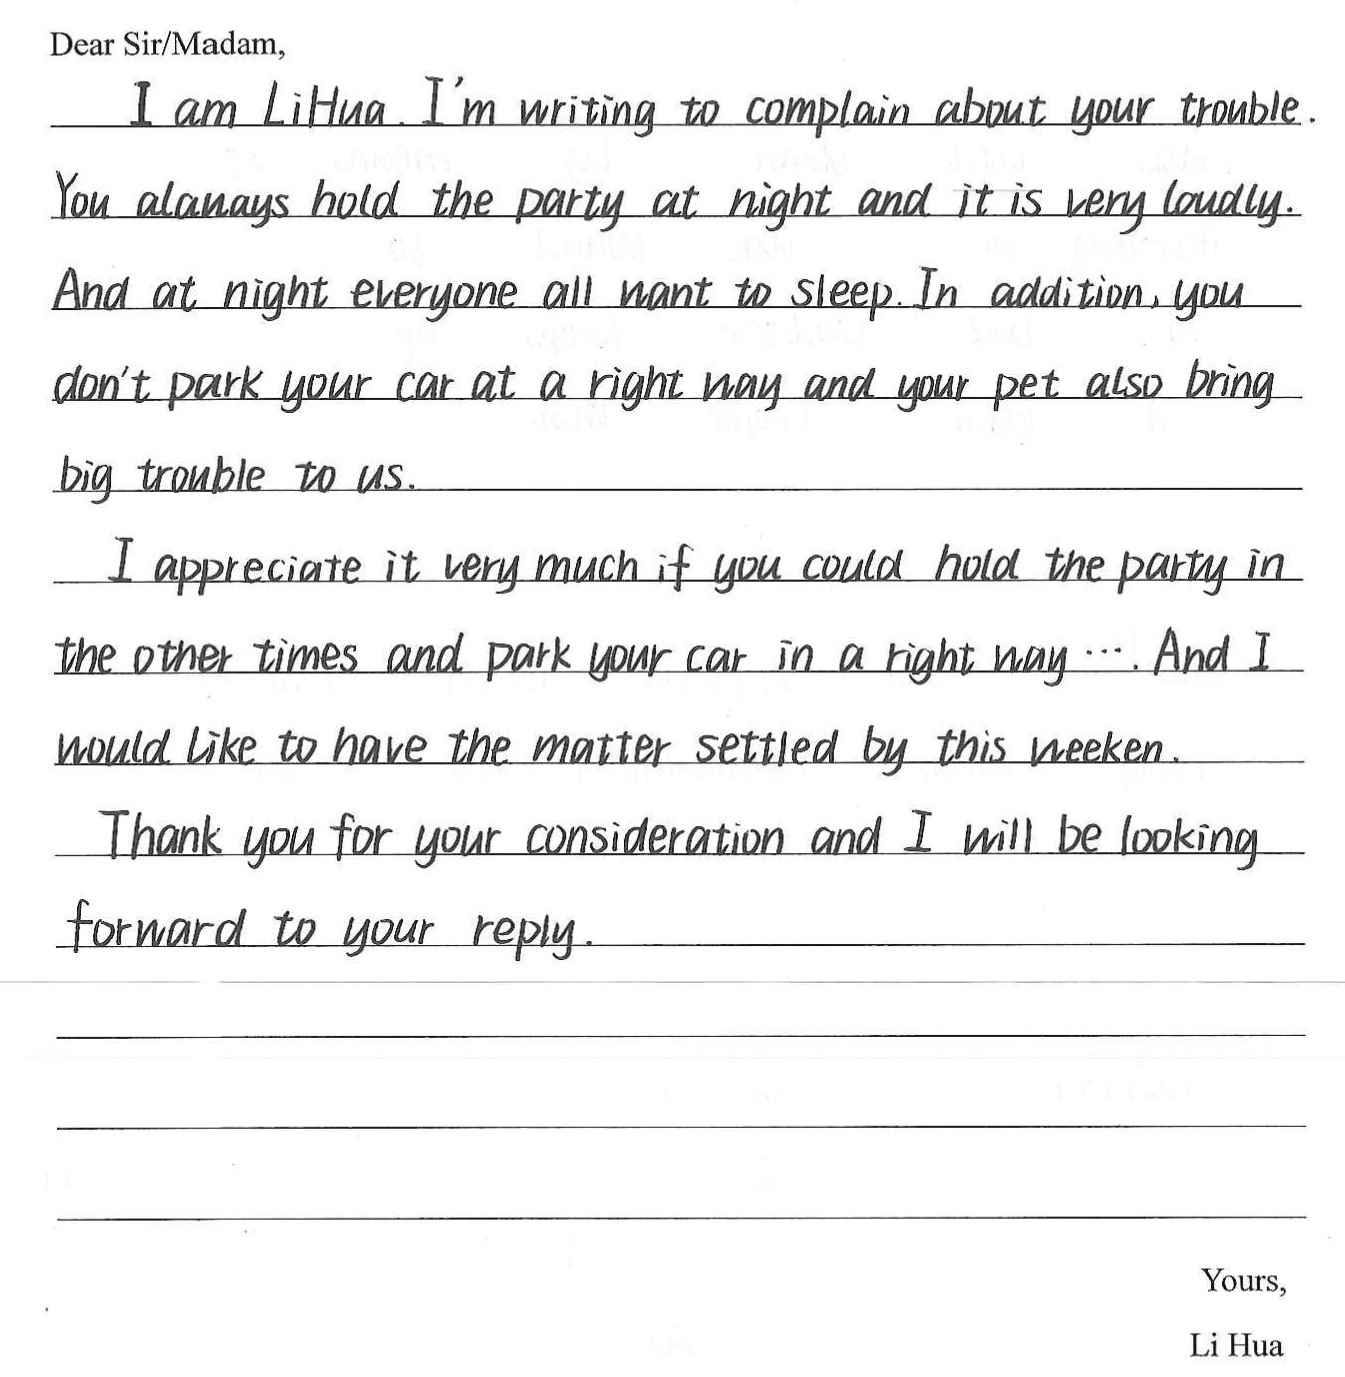 Dear Sir/Madam,
I am LiHua. I'm writing to complain about your trouble.
You alanays hold the party at night and it is very loudly.
And at night everyone all want to sleep. In addition, you
don't park your car at a right way and your pet also bring
big trouble to us.
I appreciate it very much if you could hold the party in
the other times and park your car in a right way ···. And I
would like to have the matter settled by this weeken.
Thank you for your consideration and I will be looking
forward to your reply.
Yours,
Li Hua